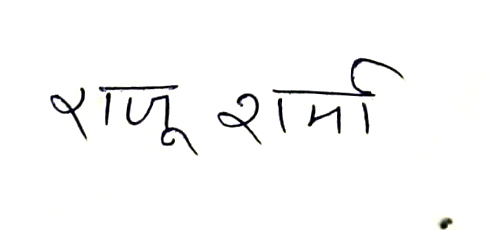 राजू शर्मा